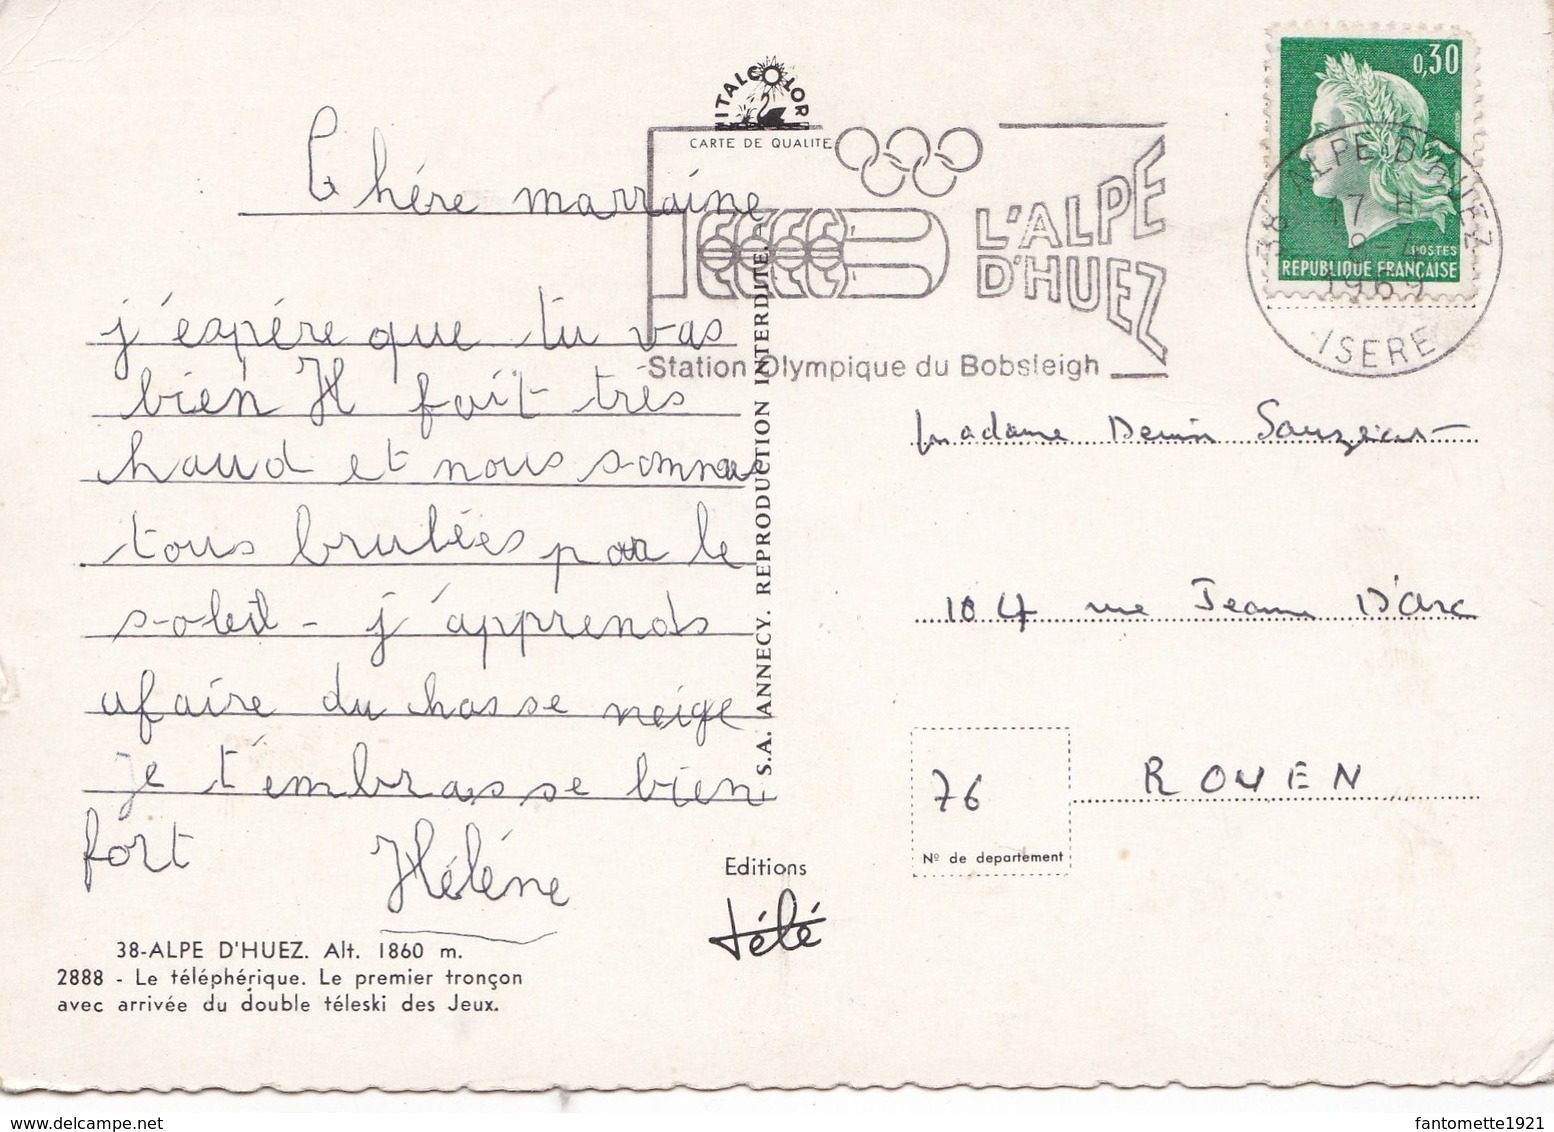 ITALCOLOR
CARTE DE QUALITE
L'ALPE
D'HUEZ
Station Olympique du Bobsleigh
0,30
POSTES
REPUBLIQUE FRANÇAISE
38 ALPE D'HUEZ
17 H
1969
ISERE
Chére marraine
j'espére que tu vas
bien Il fait très
haud et nous sommes
tous brulées par le
soleil - j'apprends
afaire du hasse neige
je t'embrasse bien
fort Hélène
S.A. ANNECY. REPRODUCTION INTERDITE.
Madame Denin
104 rue Jeanne D'Arc
76 ROUEN
Nº de departement
Editions
télé
38-ALPE D'HUEZ. Alt. 1860 m.
2888 - Le téléphérique. Le premier tronçon
avec arrivée du double téleski des Jeux.
fantomette1921